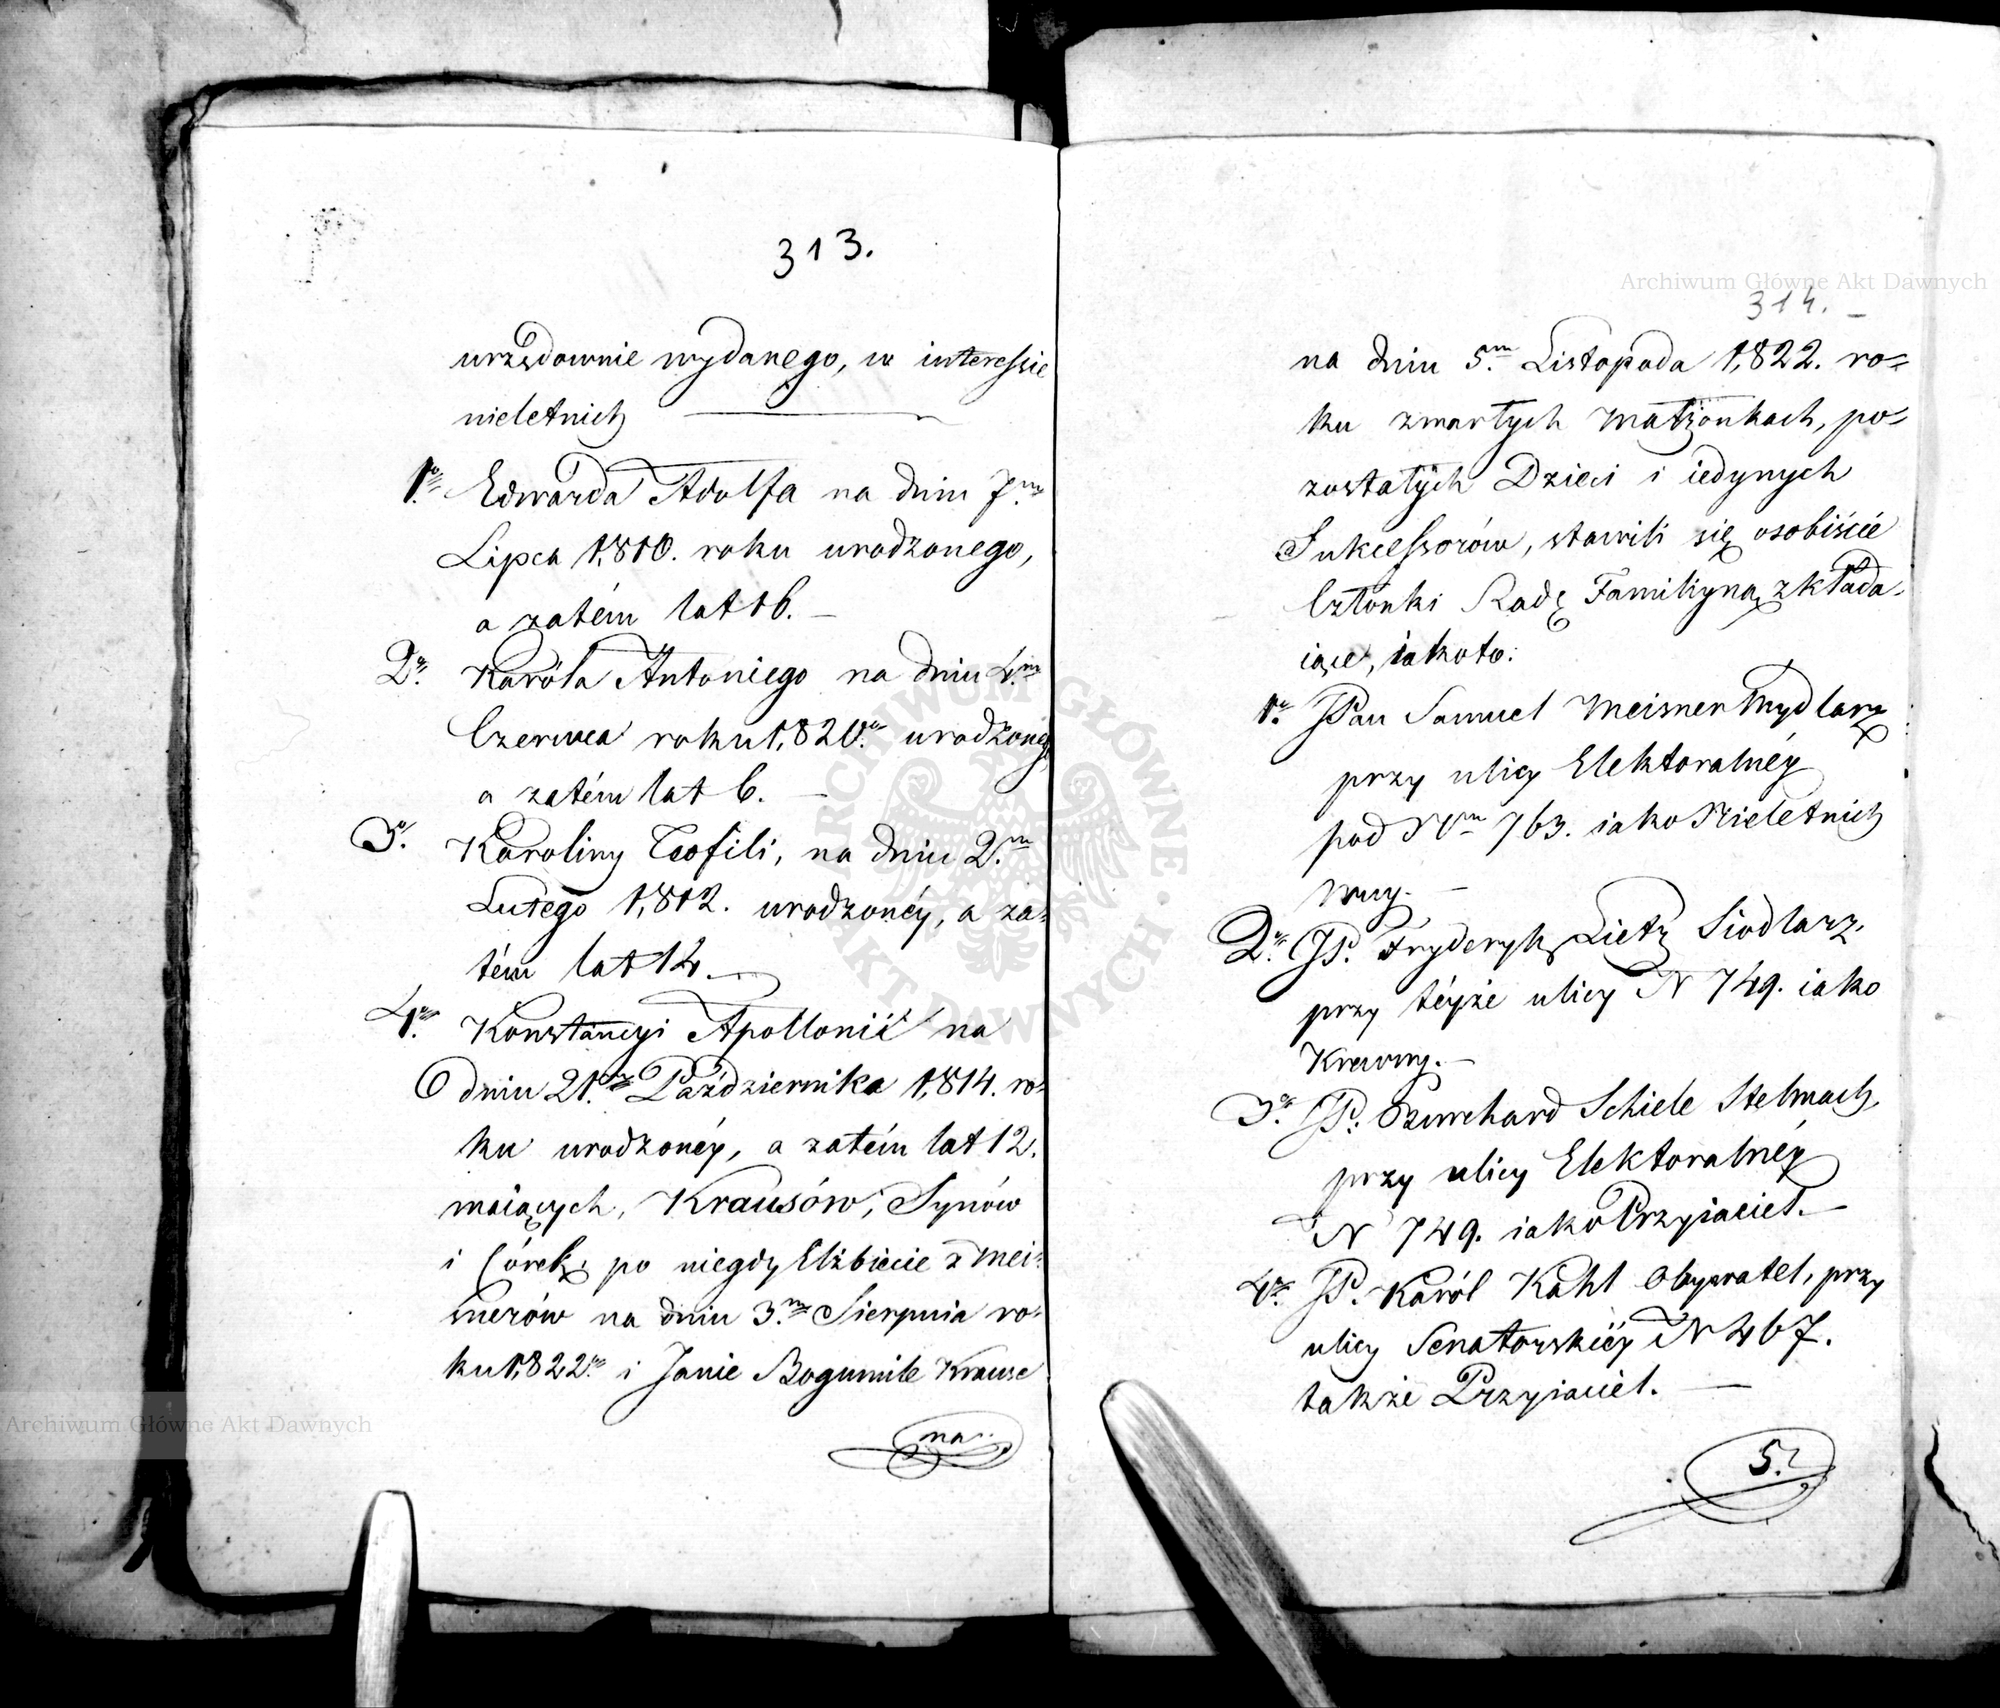 313.
urzędownie wydanego, w interessie
nieletnich
1o. Edwarda Adolfa na dniu 7m.
Lipca 1,810. roku urodzonego,
a zatém lat 16. –
2o. Karóla Antoniego na dniu 4m.
Czerwca roku 1,820o. urodzonego,
a zatém lat 6. –
3o. Karoliny Teofili, na dniu 2m.
Lutego 1,812. urodzonéy, a za=
tém lat 14. –
4o. Konstancyi Apollonii na
dniu 21m. Października 1,814. ro=
ku urodzonéy, a zatém lat 12.
maiących, Krausów, Synów
i Córek, po niegdy Elżbiecie z Mei=
snerów na dniu 3m. Sierpnia ro=
ku 1,822o. i Janie Bogumile Krause
na..
314. –
na dniu 5m. Listopada 1,822. ro=
ku zmarłych małżonkach, po=
zostałych Dzieci i iedynych
Sukcessorów, stawili się osobiście
Członki Radę Familiyną zkłada=
iące, iako to:
1o. JPan Samuel Meisner Mydlarz
przy ulicy Elektoralnéy
pod Nrm 763. iako Nieletnich
Wuy. –
2o. JP. Fryderyk Lietz Siodlarz.
przy téyże ulicy N 749. iako
Krewny. –
3o. JP. Burchard Schiele Stelmach,
przy ulicy Elektoralnéy
N 749. iako Przyiaciel. –
4o. JP. Karól Kahl Obywatel, przy
ulicy Senatorskiéy N 467.
także Przyiaciel. –
5.
Archiwum Główne Akt Dawnych
Archiwum Główne Akt Dawnych
ARCHIWUM GŁÓWNE · AKT DAWNYCH ·